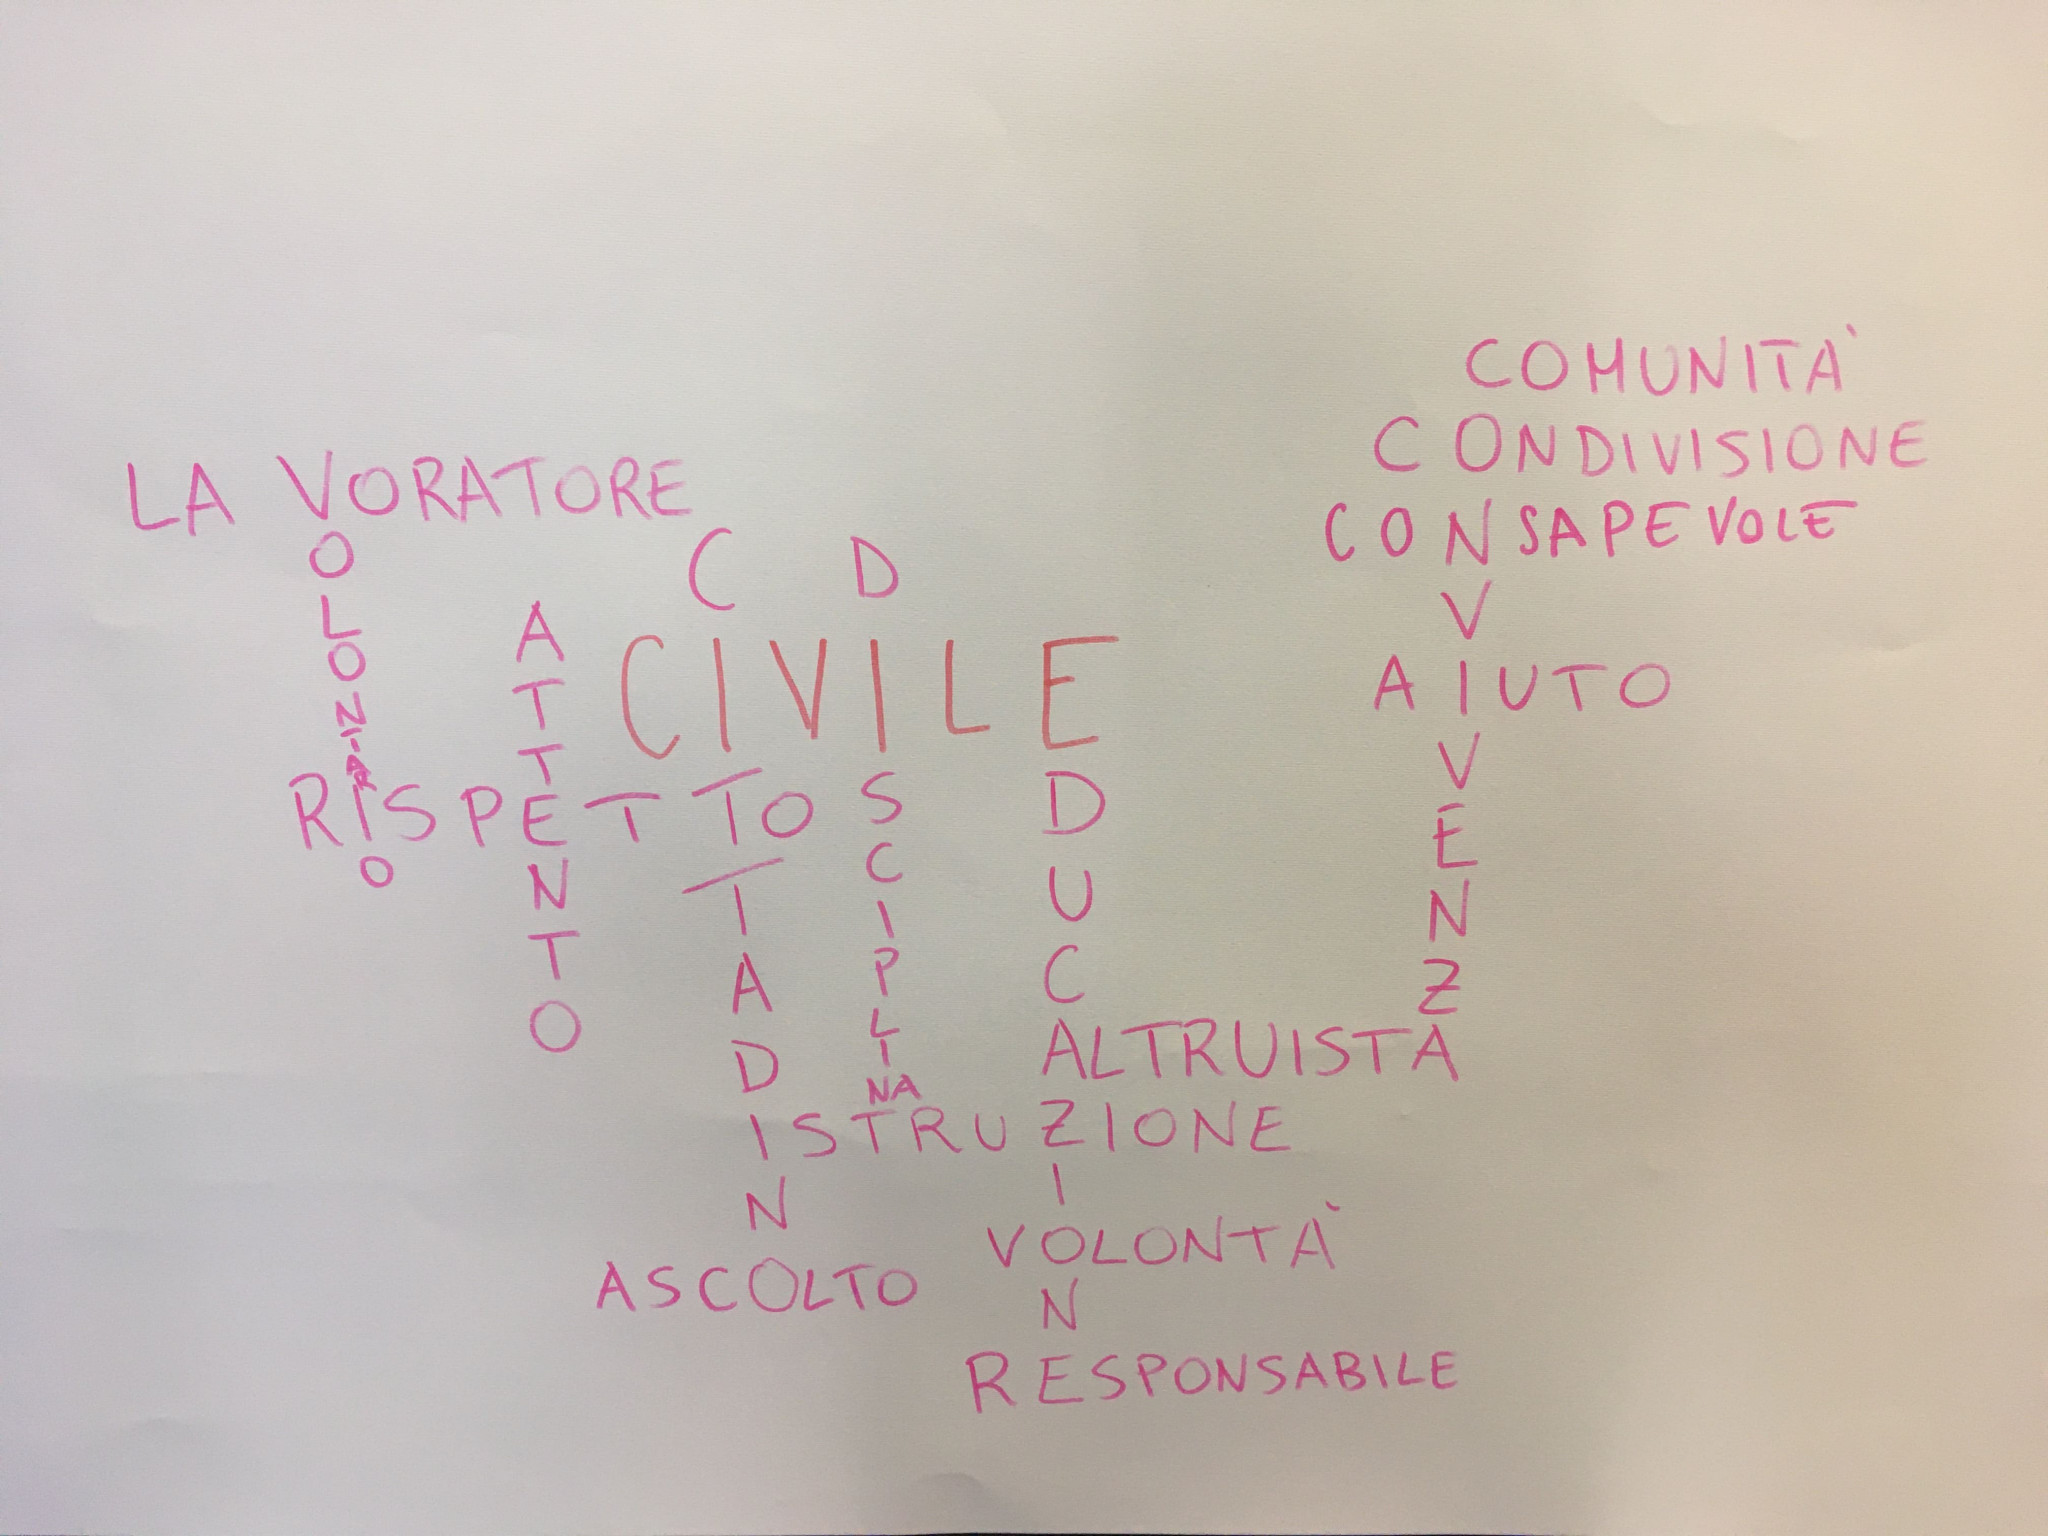 COMUNITÀ
CONDIVISIONE
CONSAPEVOLE
CONVIVENZA
AIUTO
LAVORATORE
VOLONTARIO
ATTENTO
CITTADINO
DISCIPLINA
CIVILE
EDUCAZIONE
RISPETTO
ALTRUISTA
ISTRUZIONE
VOLONTÀ
ASCOLTO
RESPONSABILE